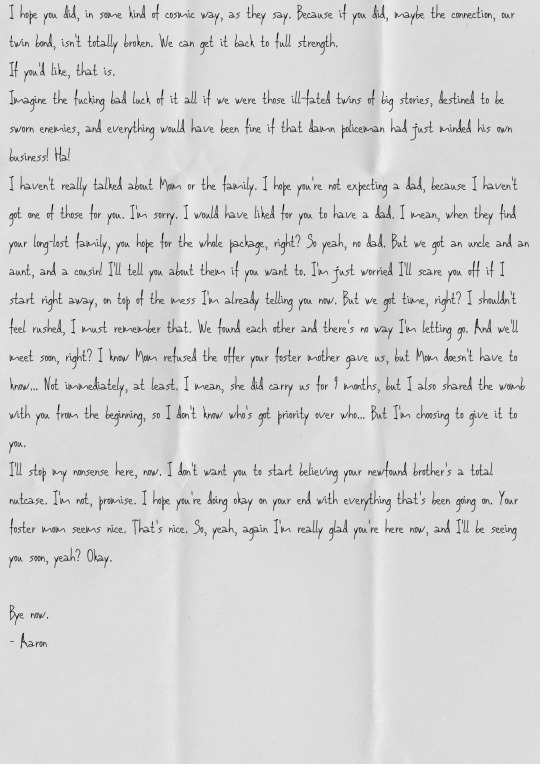 I hope you did, in some kind of cosmic way, as they say. Because if you did, maybe the connection, our
twin bond, isn't totally broken. We can get it back to full strength.
If you'd like, that is.
Imagine the fucking bad luck of it all if we were those ill-fated twins of big stories, destined to be
sworn enemies, and everything would have been fine if that damn policeman had just minded his own
business! Ha!
I haven't really talked about Mom or the family. I hope you're not expecting a dad, because I haven't
got one of those for you. I'm sorry. I would have liked for you to have a dad. I mean, when they find
your long-lost family, you hope for the whole package, right? So yeah, no dad. But we got an uncle and an
aunt, and a cousin! I'll tell you about them if you want to. I'm just worried I'll scare you off if I
start right away, on top of the mess I'm already telling you now. But we got time, right? I shouldn't
feel rushed, I must remember that. We found each other and there's no way I'm letting go. And we'll
meet soon, right? I know Mom refused the offer your foster mother gave us, but Mom doesn't have to
know... Not immediately, at least. I mean, she did carry us for 9 months, but I also shared the womb
with you from the beginning, so I don't know who's got priority over who... But I'm choosing to give it to
you.
I'll stop my nonsense here, now. I don't want you to start believing your newfound brother's a total
nutcase. I'm not, promise. I hope you're doing okay on your end with everything that's been going on. Your
foster mom seems nice. That's nice. So, yeah, again I'm really glad you're here now, and I'll be seeing
you soon, yeah? Okay.
Bye now.
- Aaron